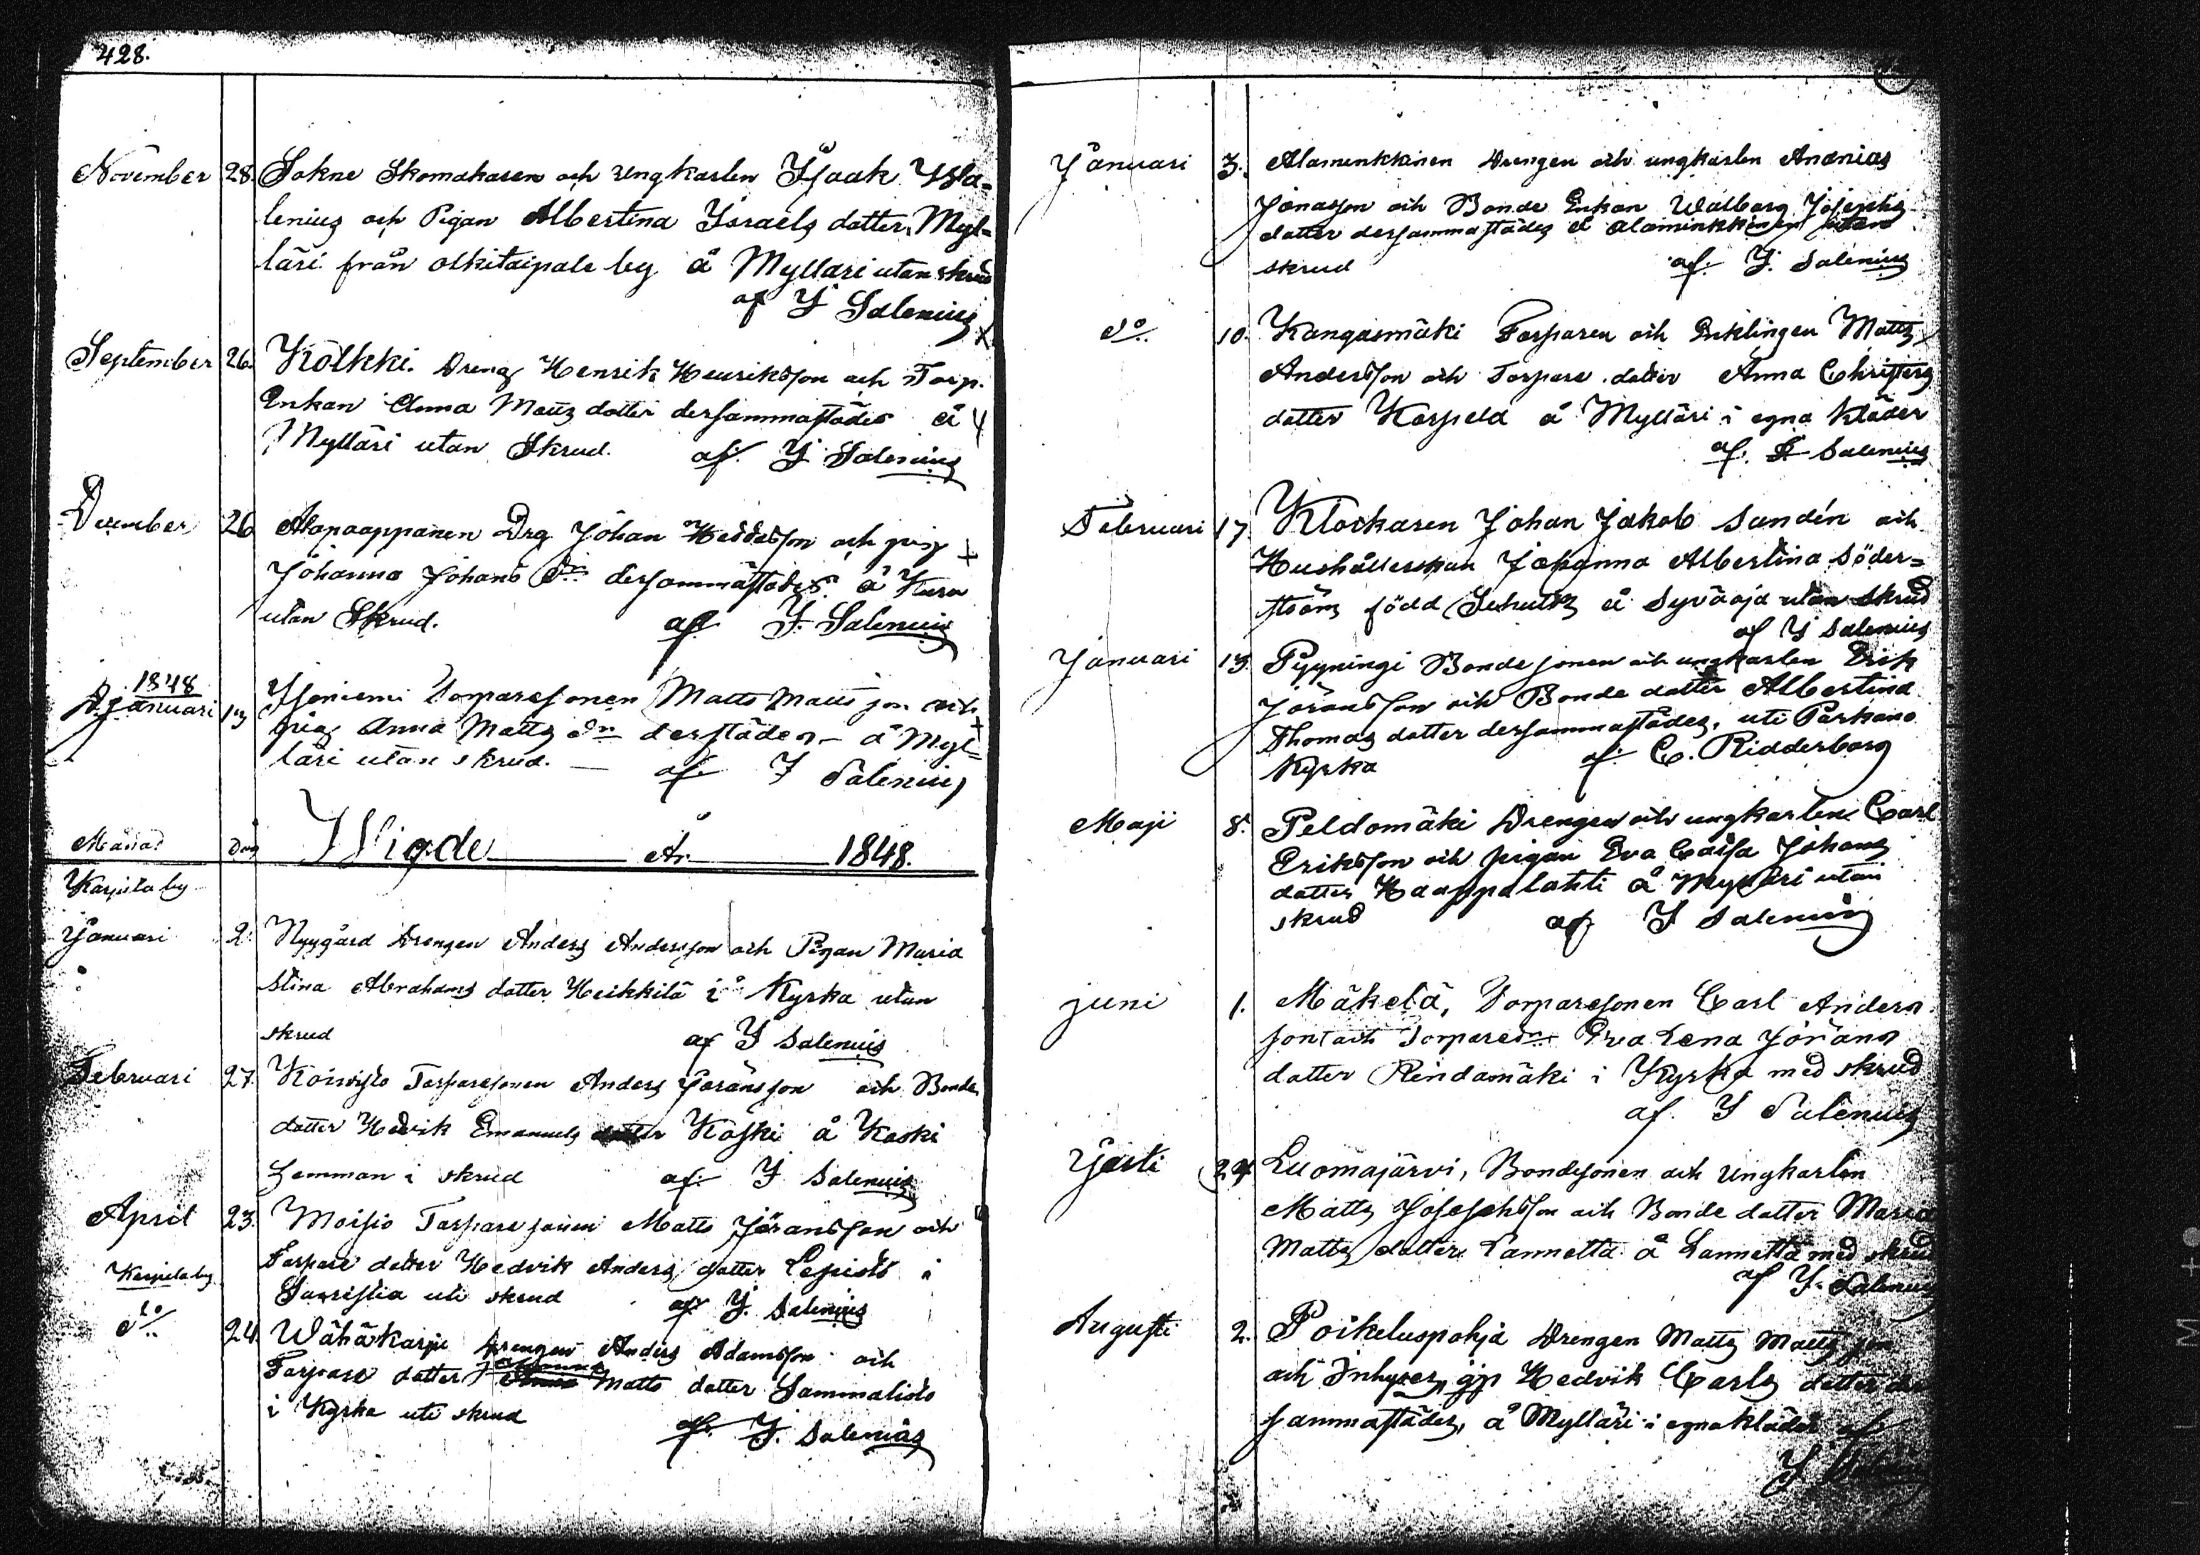 428.
November 28. Sokne Skomakaren och Ungkarlen Isaak Wsla=
lenius och Pigan Albertina Israels dotter Myl=
läri från olkitaipale by å Mylläri utan skrud
af I Salenius
September 26. Kölkki. Dreng Henrik Henriksson och Torp.
Enkan Anna Matts dotter dersammastädes å
Mylläri utan Skrud. af. I Salenius
December 26 Alapaappanen Drg Johan son och pig
Johanna Johans Dr dersammastädes å Kuru
utan Skrud. af I. Salenius
1848
Januari Isoniemi Torparesonen Matts Matts son och
pig Anna Matts dr derstädes – å Myl=
läri utan skrud. — af I Salenius
Månad Dag Wigde År 1848.
Karpila by
Januari 2 Nygård Drengen Anders Andersson och Pigan Maria
Stina Abrahams dotter Heikkilä i Kyrka utan
skrud af I Salenius
Februari 27. Koivisto Torparesonen Anders Jöransson och Bonde
dotter Hedvik Emanuels dotter Koski å Koski
Hemman i skrud af I Salenius
April 23. Moisio Torpare sonen Matts Jöransson och
Torpare dotter Hedvik Anders dotter Lepistö i
uti skrud af I. Salenius
Karpila by
do 24. Wähäkarpi Drengen Anders Adamsson och
Torpare dotter Johanna Matts dotter Sammalisto
i Kyrka uti skrud
af. I. Salenius
Januari 3. Alaminkkinen Drengen och ungkarlen Ananias
Jonasson och Bonde Enkan Walborg Josephs
dotter dersammastädes å Alaminkkinen utan
skrud af I. Salenius
do 10. Kangasmäki Torparen och Enklingen Matts
Andersson och Torpare dotter Anna Christers
dotter Karpela å Mylläri i egna kläder
af. I Salenius
Februari 17. Klockaren Johan Jakob Sundén och
Hushållerskan Johanna Albertina Söder=
ström född Schultz å Syväoja utan skrud
af I Salenius
Januari 13 Pyyningi Bonde sonen och ungkarlen Erik
Jöransson och Bonde dotter Albertina
Thomas dotter dersammastädes. uti Parkano
Kyrka af C. Ridderborg
Maji 8. Peldomäki Drengen och ungkarlen Carl
Eriksson och pigan Eva Caisa Johans
dotter Haappalahti å Mylläri utan
skrud af I Salenius
juni 1. Mäkelä, Torparesonen Carl Anders
son och Torpare dr Eva Lena Jörans
dotter Rindamäki i Kyrka med skrud
af. I Salenius
Juli 24 Luomajärvi, Bondesonen och Ungkarlen
Matts Josephsson och Bonde dotter Maria
Matts dotter Lannetta å Lannetta med skrud
af I. Salenius
Augusti 2. Poikeluspohja Drengen Matts Matts son
och Inhyses Hedvik Carls dotter der
sammastädes, å Mylläri i egna kläder af
I